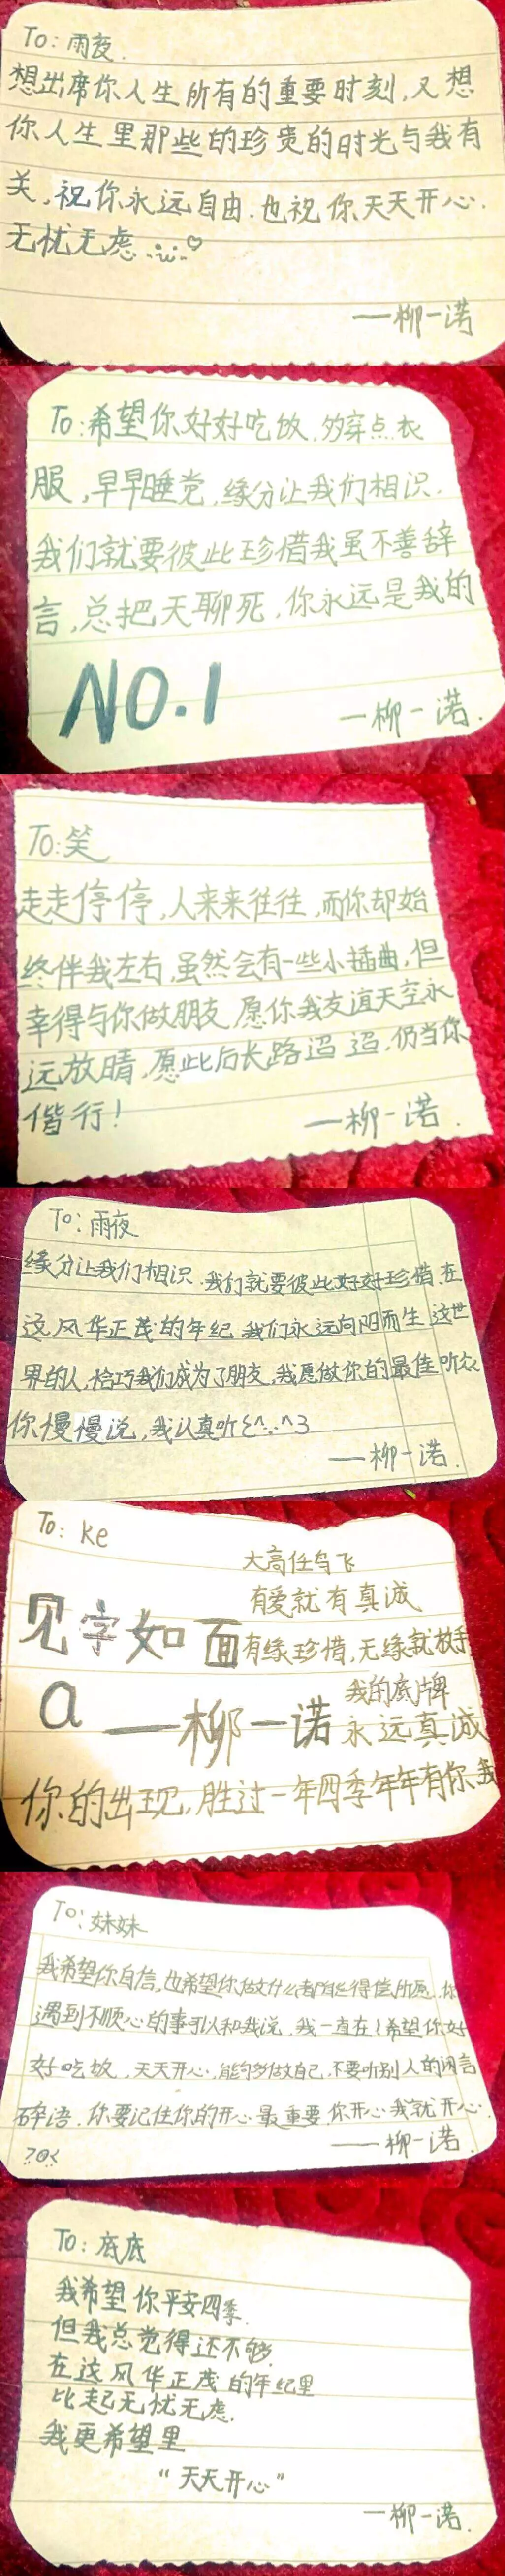 To: 雨夜.
想出席你人生所有的重要时刻,又想
你人生里那些的珍贵的时光与我有
关,祝你永远自由.也祝你天天开心.
无忧无虑
——柳一诺
To:希望你好好吃饭,多穿点衣
服,早早睡觉,缘分让我们相识,
我们就要彼此珍惜我虽不善辞
言,总把天聊死,你永远是我的
NO.1
—柳一诺.
To:笑
走走停停,人来来往往,而你却始
终伴我左右,虽然会有一些小插曲,但
幸得与你做朋友,愿你我友谊天空永
远放晴,愿此后长路迢迢,仍当你
偕行!
——柳一诺.
To:雨夜
缘分让我们相识.我们就要彼此好好珍惜.在
这风华正茂的年纪.我们永远向阳而生.这世
界的人,恰巧我们成为了朋友,我愿做你的最佳听众
你慢慢说,我认真听ξ^∵^3
——柳一诺.
To: Ke
大高任鸟飞
有爱就有真诚
见字如面
有缘珍惜,无缘就放手
我的底牌
a ——柳一诺
永远真诚
你的出现,胜过一年四季年年有你我
To:妹妹
我希望你自信,也希望你做什么都能得偿所愿.你
遇到不顺心的事可以和我说,我一直在!希望你好
好吃饭,天天开心,能够多做自己,不要听别人的闲言
碎语.你要记住你的开心最重要.你开心我就开心.
——柳一诺.
To:底底
我希望你平安四季.
但我总觉得还不够
在这风华正茂的年纪里
比起无忧无虑.
我更希望里
“天天开心”
—柳一诺.